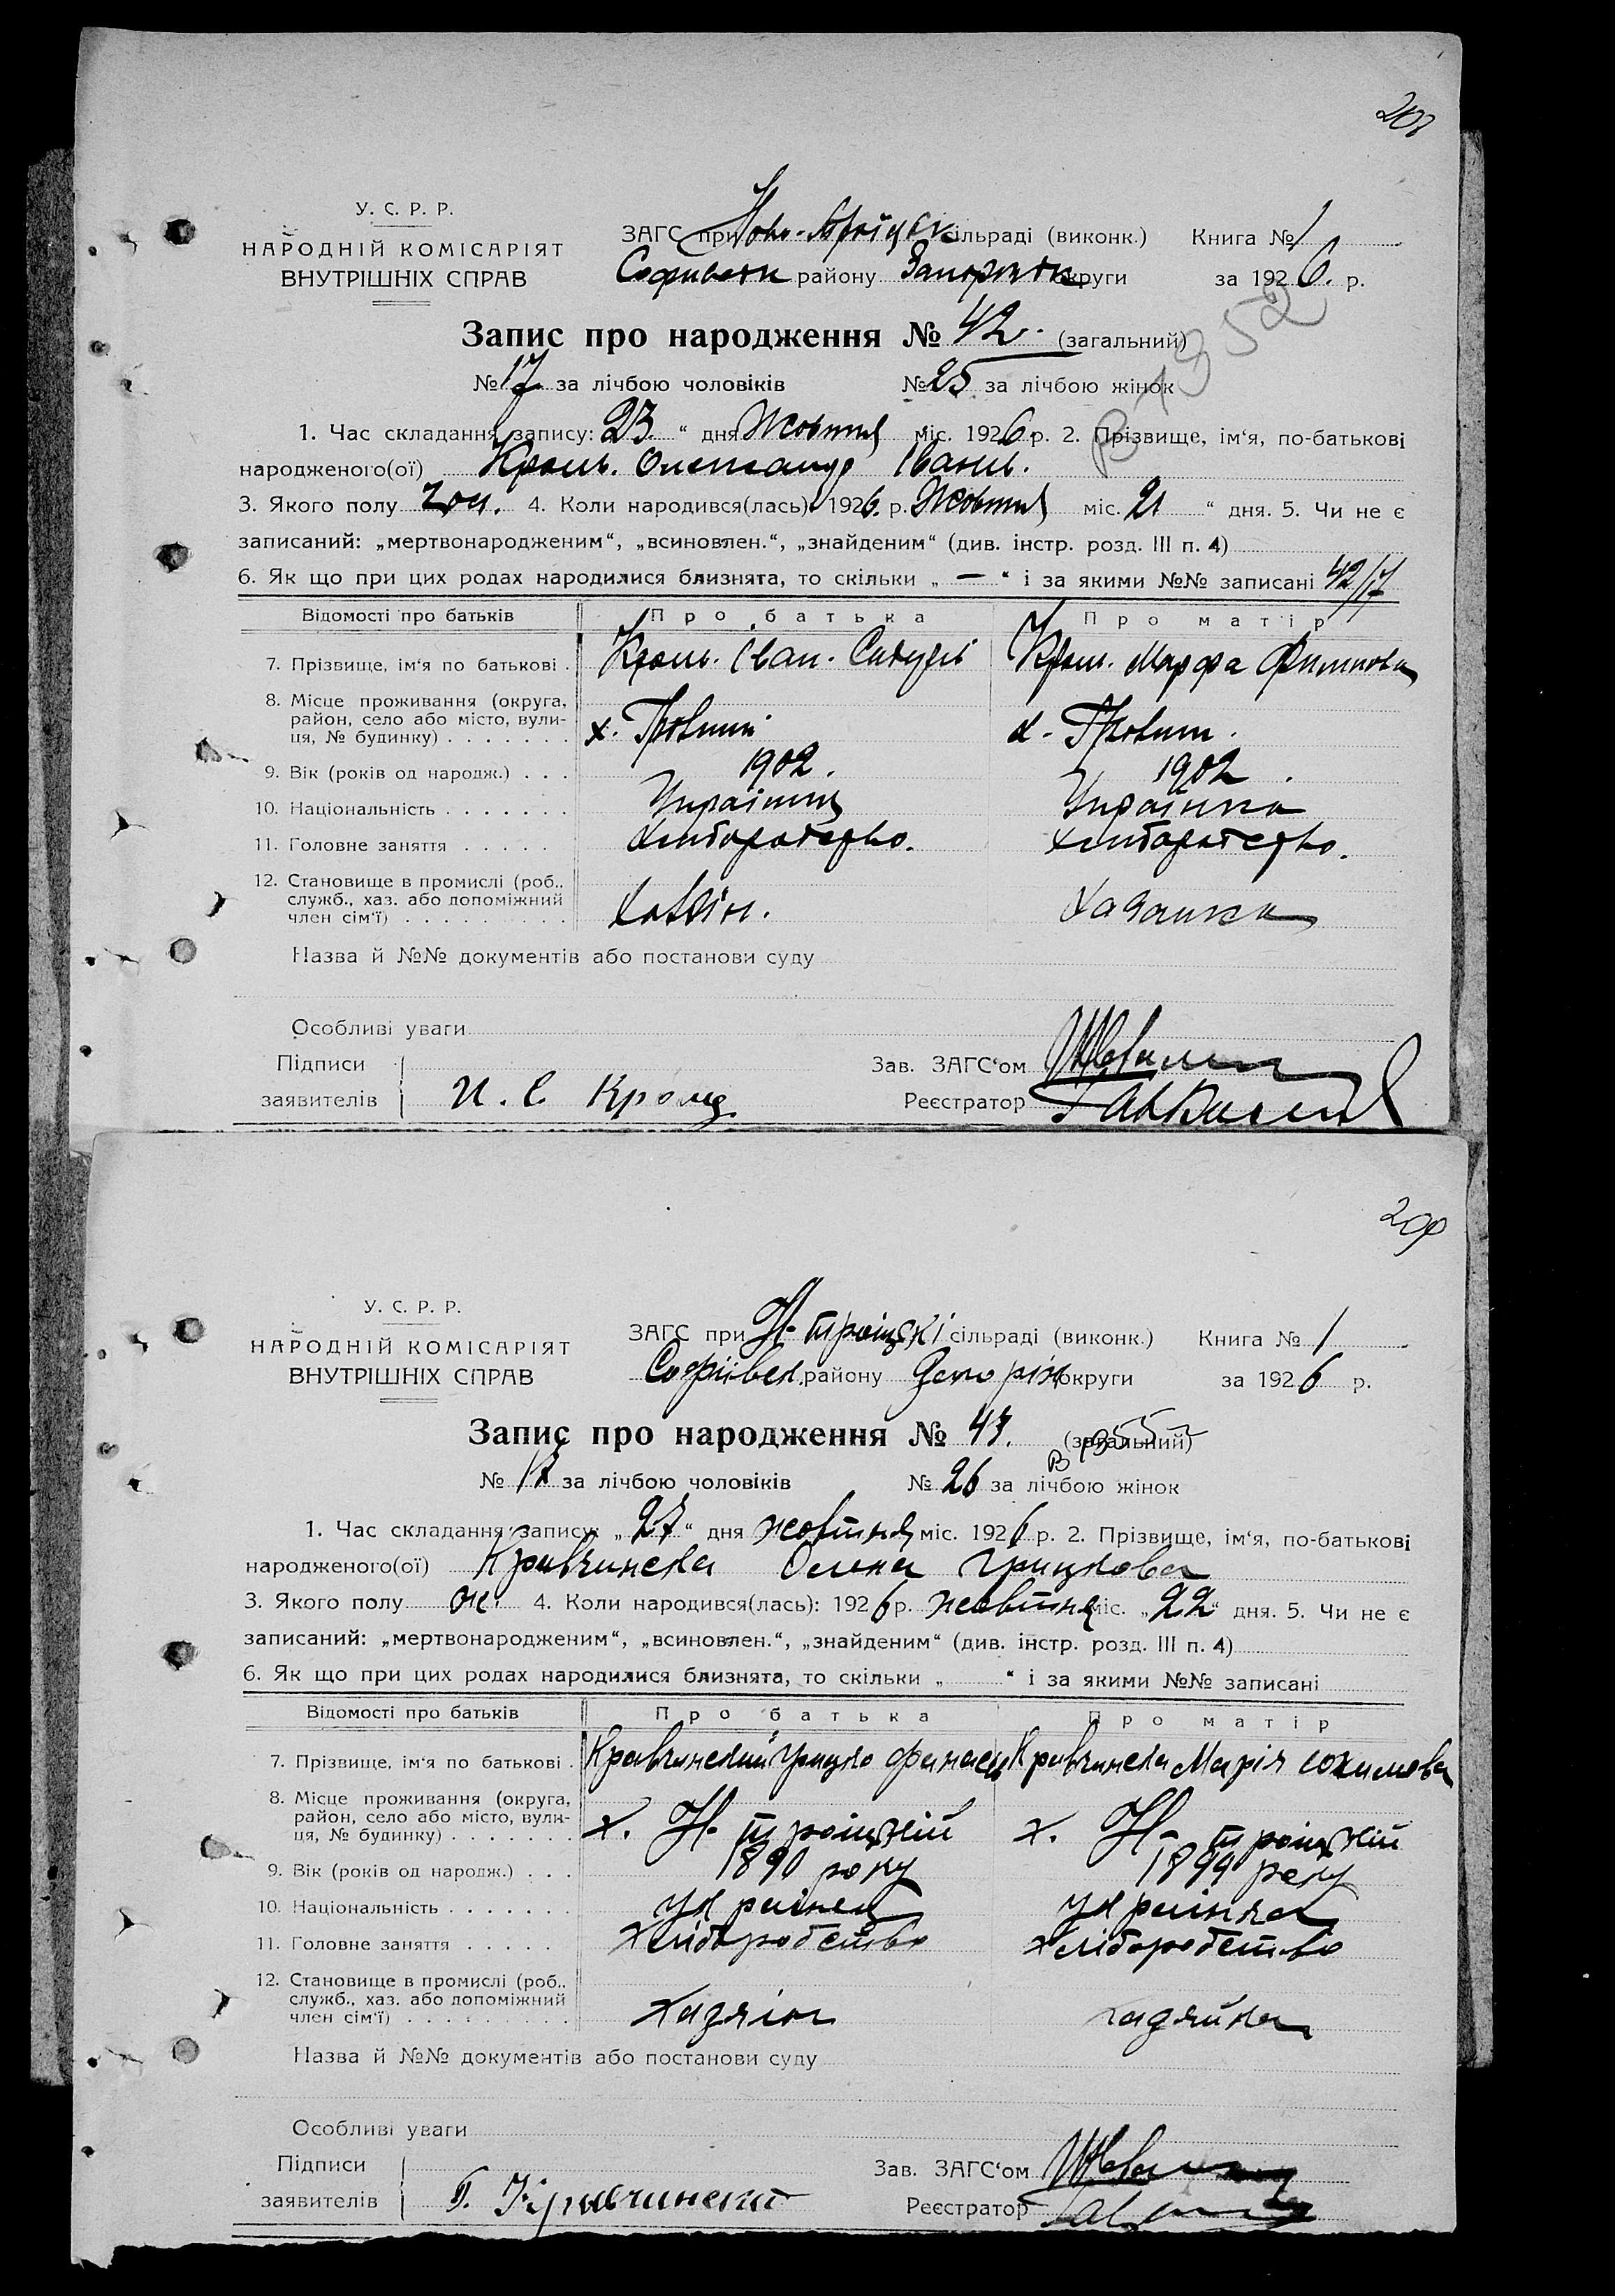 У. С. Р. Р.
НАРОДНІЙ КОМІСАРІЯТ
ВНУТРІШНІХ СПРАВ
ЗАГС при Ново-Троїцьк сільраді (виконк.) Книга № 1
Софиевськ району Запоріжськ округи за 1926. р.
Запис про народження № 42. (загальний)
№ 17 за лічбою чоловіків № 25 за лічбою жінок
1. Час складання запису: 23 " дня Жовтня міс. 1926 р. 2. Прізвище, ім'я, по-батькові
народженого(ої) Кроль. Олександр Івань.
3. Якого полу чол. 4. Коли народився(лась): 1926. р. Жовтня міс. 21 " дня. 5. Чи не є
записаний: „мертвонародженим“, „всиновлен.“, „знайденим“ (див. інстр. розд. III п. 4)
6. Як що при цих родах народилися близнята, то скільки „ — “ і за якими №№ записані 42/17
Відомості про батьків Про батька Про матір
7. Прізвище, ім'я по батькові . Кроль. Іван. Кроль. Марфа
8. Місце проживання (округа,
район, село або місто, вули-
ця, № будинку) . . . . . . . х. х.
9. Вік (років од народж.) . . . 1902. 1902.
10. Національність . . . . . . . Українець Українка
11. Головне заняття . . . . . Хліборобство. Хліборобство.
12. Становище в промислі (роб.,
служб., хаз. або допоміжний
член сім'ї) . . . . . . . . . Хазяїн. Хазяйка
Назва й №№ документів або постанови суду
Особливі уваги
Підписи
заявителів И. С Кроль
Зав. ЗАГС'ом
Реєстратор
У. С. Р. Р.
НАРОДНІЙ КОМІСАРІЯТ
ВНУТРІШНІХ СПРАВ
ЗАГС при Н-троіцькі сільраді (виконк.) Книга № 1
Софіівськ. району Запоріж округи за 1926 р.
Запис про народження № 43. (загальний)
№ 17 за лічбою чоловіків № 26 за лічбою жінок
1. Час складання запису: „ 27 “ дня жовтня міс. 1926 р. 2. Прізвище, ім'я, по-батькові
народженого(ої) Кравчинска Олена Грицкова
3. Якого полу ж. 4. Коли народився(лась): 1926 р. жовтня міс. „ 22 “ дня. 5. Чи не є
записаний: „мертвонародженим“, „всиновлен.“, „знайденим“ (див. інстр. розд. III п. 4)
6. Як що при цих родах народилися близнята, то скільки „ “ і за якими №№ записані
Відомості про батьків Про батька Про матір
7. Прізвище, ім'я по батькові . Кравчинский Грицко Кравчинска Марія
8. Місце проживання (округа,
район, село або місто, вули-
ця, № будинку) . . . . . . . х. Н-троіцкій х. Н-троіцкій
9. Вік (років од народж.) . . . 1890 року 1899 року
10. Національність . . . . . . . украінец украінка
11. Головне заняття . . . . . хліборобство хліборобство
12. Становище в промислі (роб.,
служб., хаз. або допоміжний
член сім'ї) . . . . . . . . . хазяін хазяйка
Назва й №№ документів або постанови суду
Особливі уваги
Підписи
заявителів Г. Кравчинский
Зав. ЗАГС'ом
Реєстратор